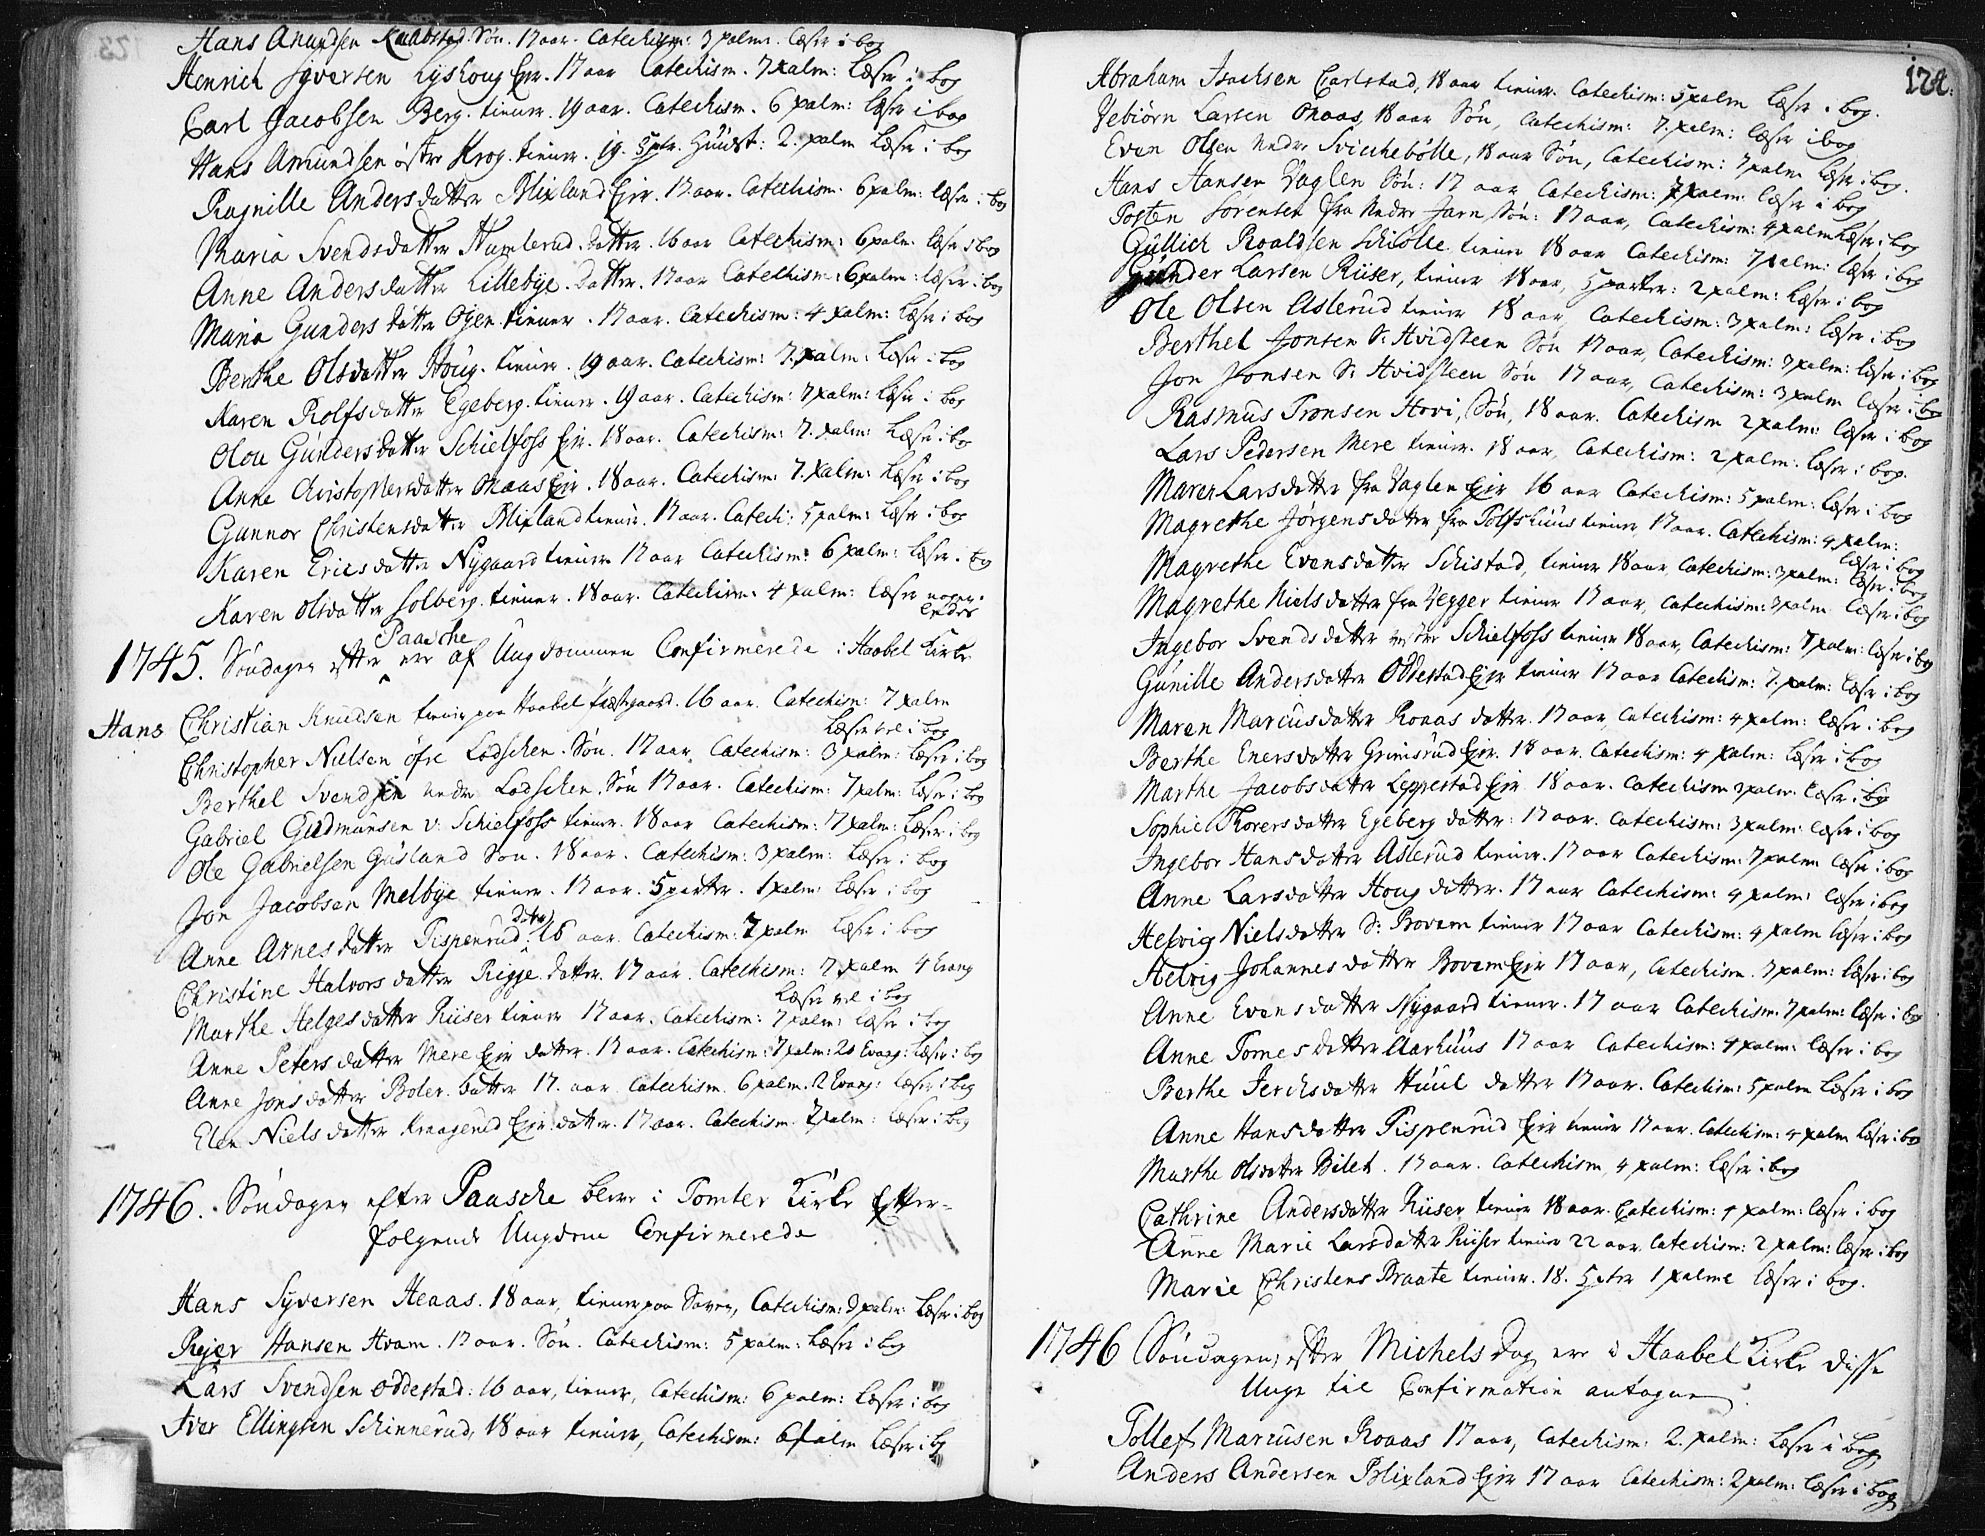 Hans Anundsen Knabstad. Søn. 17 aar. Catechism: 3 psalm. læser i bog
Henrich Syversen Lyshoug Eir. 17 aar Catechism. 7 psalm: læser i bog
Carl Jacobsen Berg. tiener. 19 aar. Catechism. 6 psalm: læser i bog
Hans Amundsen østre Krog. tiener. 19. 5 ptr. 2. psalm læser i bog
Ragnille Anders datter Blixland Eir. 17 aar. Catechism. 6 psalm: læser i bog
Maria Svendsdatter Humlerud. datter. 16 aar Catechism: 6 psalm: læser i bog
Anne Anders datter Lillebye. datter. 17 aar Catechism: 6 psalm: læser i bog
Maria Gunders datter Ojen. tiener. 17 aar. Catechism: 4 psalm: læser i bog
Berthe Olsdatter Houg. tiener. 19 aar. Catechism: 7. psalm: læser i bog
Karen Rolfs datter Egeberg. tiener. 19 aar. Catechism: 7 psalm: læser i bog
Olou Gunders datter Schielfoss Eir. 18 aar. Catechism: 7. psalm: læser i bog
Anne Christophersdatter Onaas Eir. 18 aar. Catechism: 7. psalm: læser i bog
Gunnor Christensdatter Blixland tiener. 17 aar. Catech: 5 psalm: læser i bog
Karen Erics datter Nygaard tiener 17 aar Catechism: 6 psalm: læser i bog
Karen Olsdatter Solberg. tiener. 18 aar. Catechism: 4 psalm: læser nogen-
ledes
1745. Søndagen efter Paasche ere af Ungdommen Confirmerede i Haabel Kirke
Hans Christian Knudsen tiener paa Haabel Præstgaard. 16 aar. Catechism: 7 psalm
læser vel i bog
Christopher Nielsen øfre Lodschen. Søn. 17 aar. Catechism: 3 psalm: læser i bog
Berthel Svendsen nedre Lodschen. Søn 17 aar. Catechism: 7 psalm: læser i bog
Gabriel Gudmunsen v: Schielfoss tiener. 18 aar Catechism: 7 psalm: læser i bog
Ole Gabrielsen Gusland Søn. 18 aar. Catechism: 3 psalm: læser i bog
Jon Jacobsen Melbye tiener. 17 aar. 5 parter. 1 psalm: læser i bog
Anne Arnes datter Tispenrud: datter 16 aar. Catechism: 7 psalm læser i bog
Christine Halvors datter Rigge. datter. 17 aar. Catechism: 7 psalm 4 Evang
læser vel i bog
Marthe Helges datter Riiser tiener 17 aar. Catechism: 7 psalm: læser i bog
Anne Peters datter Mere Eir datter. 17 aar. Catechism: 7 psalm: 20 Evang: læser i bog
Anne Jons datter Boler. datter 17. aar. Catechism. 6 psalm. 2 Evang: læser i bog
Elen Niels datter Kraagerud Eir. datter. 17 aar. Catechism. 7 psalm: læser i bog
1746. Søndagen efter Paasche blev i Tomter Kirke Efter-
følgende Ungdom Confirmerede
Hans Syversen Heaas. 18 aar, tiener paa Catechism: 3 psalm: læser i bog
Rejer Hansen Hvam. 17 aar. Søn. Catechism: 5 psalm: læser i bog
Lars Svendsen Oddestad: 16 aar, tiener, Catechism: 6 psalm: læser i bog
Iver Ellingsen Schinnerud, 18 aar tiener, Catechism: 6 psalm læser i bog
124.
Abraham Isachsen Carlstad, 18 aar tiener. Catechism: 5 psalm læser i bog.
Vebiørn Larsen Onaas, 18 aar Søn, Catechism: 7. psalm: læser i bog
Even Olsen nedre Svichebølle, 18 aar Søn, Catechism: 7 psalm læser i bog.
Hans Hansen Vaglen Søn: 17 aar Catechism: 7 psalm: læser i bog
Posten Sørensen fra nedre Jarn Søn: 17 aar, Catechism: 4 psalm læser i bog
Gullich Roaldsen Schiølle tiener 18 aar Catechism: 7 psalm: læser i bog
Gunder Larsen Riiser, tiener 18 aar, 5 parter: 2 psalm: læser i bog
Ole Olsen Aslerud tiener 18 aar Catechism: 3 psalm: læser i bog
Berthel Jonsen S: Hvidsteen Søn 17 aar, Catechism: 7 psalm: læser i bog
Jon Jonsen S: Hvidsteen Søn 17 aar, Catechism: 3 psalm læser i bog
Rasmus Tronsen Hovi, Søn, 18 aar. Catechism 2 psalm: læser i bog
Lars Pedersen Mere tiener. 18 aar, Catechism: 2 psalm: læser i bog.
Maren Larsdatter fra Vaglen Eir 16 aar Catechism: 5 psalm: læser i bog
Magrethe Jørgens datter fra Tolfshuus tiener 17 aar. Catechism: 4 psalm:
læser i bog
Magrethe Evensdatter Schistad, tiener 18 aar, Catechism: 3 psalm: læser i bog
Magrethe Niels datter fra Vegger tiener 17 aar, Catechism: 7 psalm læser i bog
Ingebor Svends datter vester Schielfoss tiener 18 aar, Catechism: 7 psalm: læser i bog
Gunille Andersdatter Oddestad Eir tiener 17 aar Catechism: 7. psalm: læser i bog
Maren Marcusdatter Roaas datter. 17 aar, Catechism: 4 psalm: læser i bog
Berthe Enersdatter Grimsrud Eir. 18 aar. Catechism: 4 psalm: læser i bog
Marthe Jacobsdatter Leppestad Eir. 18 aar. Catechism 2 psalm: læser i bog
Sophie Thorers datter Egeberg datter: 17 aar. Catechism: 3 psalm: læser i bog
Ingebor Hansdatter Aslerud tiener. 17 aar Catechism: 7 psalm læser i bog
Anne Larsdatter Houg datter. 17 aar Catechism: 4 psalm: læser i bog
Helvig Nielsdatter S: Bovem tiener 17 aar Catechism: 4 psalm læser i bog
Helvig Johannes datter Bovem Eir 17 aar, Catechism. 7 psalm: læser i bog
Anne Evens datter Nygaard tiener. 17 aar Catechism. 7 psalm: læser i bog
Anne Tomes datter Aarhuus 17 aar Catechism: 4 psalm: læser i bog
Berthe Jerchsdatter Huul datter 17 aar. Catechism: 5 psalm læser i bog
Anne Hansdatter Tispenrud Eir tiener 17 aar. Catechism: 4 psalm læser i bog
Marthe Olsdatter Bilet. 17 aar. Catechism, 4 psalm: læser i bog
Cathrine Andersdatter Riiser tiener 18 aar. Catechism: 4 psalm: læser i bog
Anne Marie Larsdatter Riiser tiener 22 aar Catechism: 2 psalm: læser i bog
Marie Christens Braate tiener. 18. 5 ptr 1 psalme læser i bog.
1746 Søndagen efter Michels dag ere i Haabel Kirke disse
Unge til Confirmation antagne
Tollef Marcusen Roaas 17 aar, Catechism: 2. psalm: læser i bog
Anders Andersen Blixland Eir 17 aar Catechism: 2 psalm: læser i bog